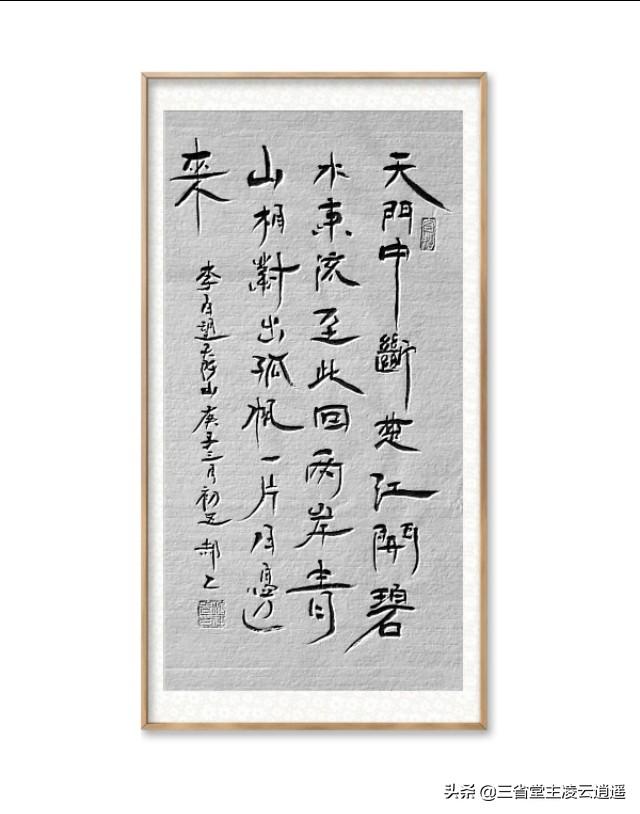 天門中斷楚江開碧
水東流至此回两岸青
山相對出孤帆一片日邊
来
李白望天门山庚子三月初五
头条 @三省堂主凌云逍遥